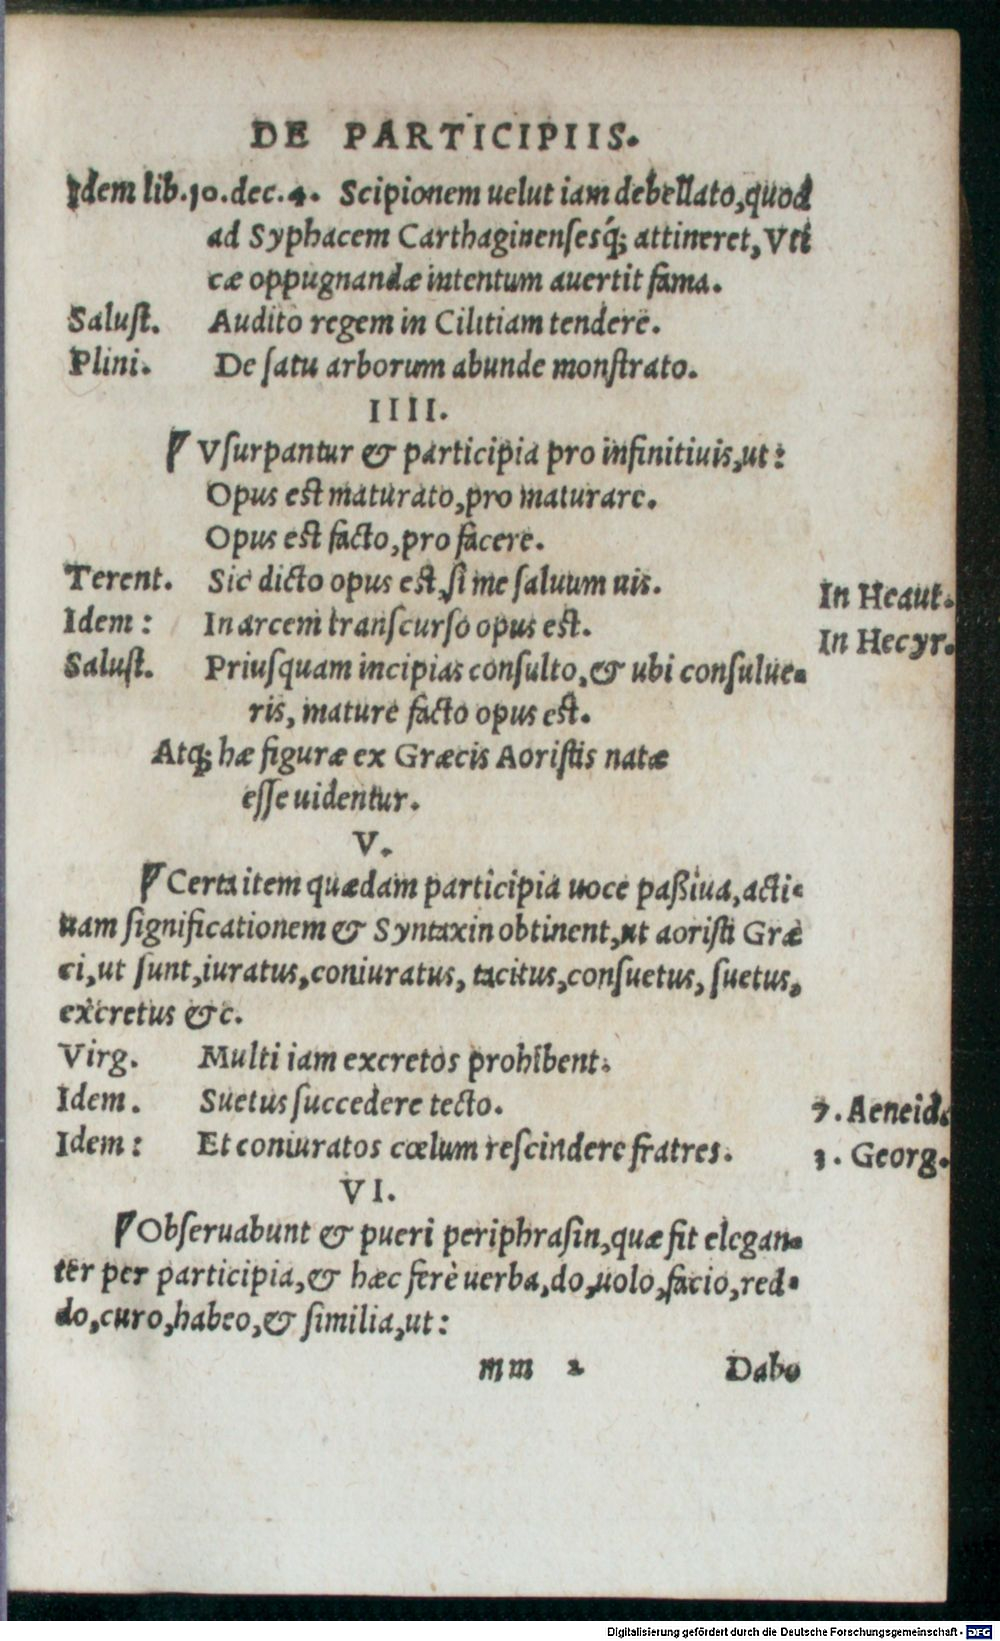 DE PARTICIPIIS.
Idem lib.10.dec.4. Scipionem uelut iam debellato,quod
ad Syphacem Carthaginensesq́; attineret, Vti
cæ oppugnandæ intentum auertit fama.
Salust. Audito regem in Cilitiam tendere.
Plini. De satu arborum abunde monstrato.
IIII.
Vsurpantur & participia pro infinitiuis,ut:
Opus est maturato,pro maturare.
Opus est facto,pro facere.
Terent. Sic dicto opus est,si me saluum uis. In Heaut.
Idem: In arcem transcurso opus est. In Hecyr.
Salust. Priusquam incipias consulto,& ubi consulue-
ris, mature facto opus est.
Atq; hæ figuræ ex Græcis Aoristis natæ
esse uidentur.
V.
Certa item quædam participia uoce paßiua,acti-
uam significationem & Syntaxin obtinent,ut aoristi Græ
ci,ut sunt,iuratus,coniuratus, tacitus,consuetus, suetus,
excretus &c.
Virg. Multi iam excretos prohibent.
Idem. Suetus succedere tecto. 7. Aeneid.
Idem: Et coniuratos cœlum rescindere fratres. 1. Georg.
VI.
Obseruabunt & pueri periphrasin,quæ fit elegan-
ter per participia,& hæc ferè uerba,do,uolo,facio,red-
do,curo,habeo,& similia,ut:
mm 2 Dabo
Digitalisierung gefördert durch die Deutsche Forschungsgemeinschaft - DFG